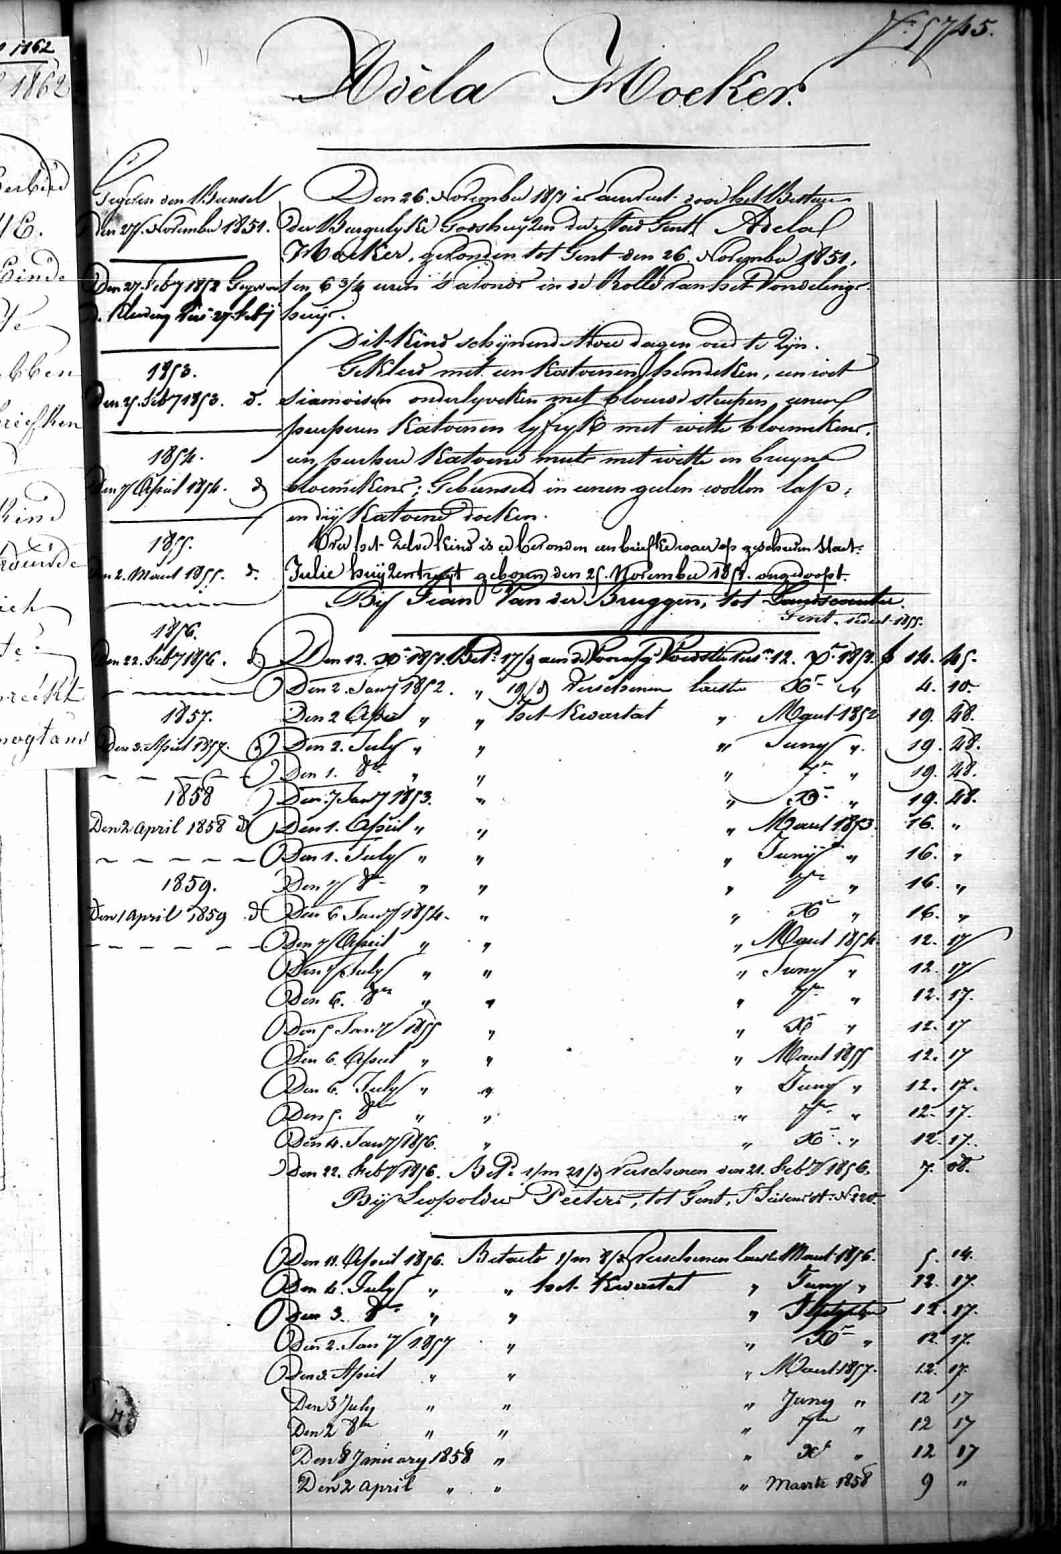 N.º 5745.
Adela Moeker.
Gegeven den Bunsel
den 27. November 1851.
Den 27. Feby 1852 Gegeven
d. Kleding
1853.
Den 25. Feby 1853. d.
1854.
Den 7 April 1854. d
1855.
Den 2. Maart 1855. d.
1856.
Den 22. Feby 1856. d
1857.
Den 3. April 1857. d
1858
Den 2 April 1858 d
1859.
Den 1 April 1859 d
Den 26. November 1851 is aenveerd door het Bestuer
der Burgelyke Godshuyzen der Stad Gent, Adela
Moeker, gevonden tot Gent den 26. November 1851,
ten 6 3/4 uren 's avonds in de Rolle van het Vondeling-
huys.
Dit Kind schynende twee dagen oud te zyn.
Gekleed met een Katoenen hemdeken, een wit
siamoisen onderlyveken met blauwe streepen, eenen
peirperen Katoenen lyfryk met witte bloemekens,
een purpere Katoene muts met witte en bruyne
bloemekens; Gebunseld in eenen geelen wollen lap,
en dry Katoene doeken.
Over het zelve kind is er bevonden een briefke waer op geschreven staet:
Julie huyzentruyt geboren den 25. November 1851. ongedoopt.
By Jean Van der Bruggen, tot
Gent.
Den 12. Xbr 1851. Betd. 17/d aen de Voorafg. Voedster 12. Xbr 1851. f 14. 45.
Den 2. Jany 1852. " 19/d verschenen laetste Xbr " 4. 10.
Den 2 April " " het Kwartael " Maart 1852 19. 28.
Den 2. July " " " Juny " 19. 28.
Den 1. 8br " " " 7br " 19. 28.
Den 7 Jany 1853. " " Xbr " 19. 28.
Den 1. April " " " Maart 1853. 16. "
Den 1. July " " " Juny " 16. "
Den 7 8br " " " 7br " 16. "
Den 6 Jany 1854. " " Xbr " 16. "
Den 7 April " " " Maart 1854. 12. 17
Den 7 July " " " Juny " 12. 17
Den 6. 8br " " " 7br " 12. 17.
Den 5 Jany 1855 " " Xbr " 12. 17
Den 6. April " " " Maart 1855 12. 17
Den 6. July " " " Juny " 12. 17.
Den 5. 8br " " " 7br " 12. 17.
Den 4. Jany 1856. " " Xbr " 12. 17.
Den 22. Feby 1856. Betd. 1/m 21/d verschenen den 21. Feby 1856. 7. 08.
By Leopoldus Peeters, tot Gent,
Den 11. April 1856. Betaeld 1/m 8/d verschenen laetst Maart 1856. 5. 14.
Den 4. July " " het Kwartael " Juny " 12. 17.
Den 3. 8br " " " 12. 17.
Den 2. Jany 1857 " " Xbr " 12 17.
Den 3. April " " " Maart 1857. 12. 17.
Den 3 July " " " Juny " 12 17
Den 2 8br " " " 7br " 12 17
Den 8 January 1858 " " Xr " 12 17
Den 2 April " " " Maarte 1858 9 "